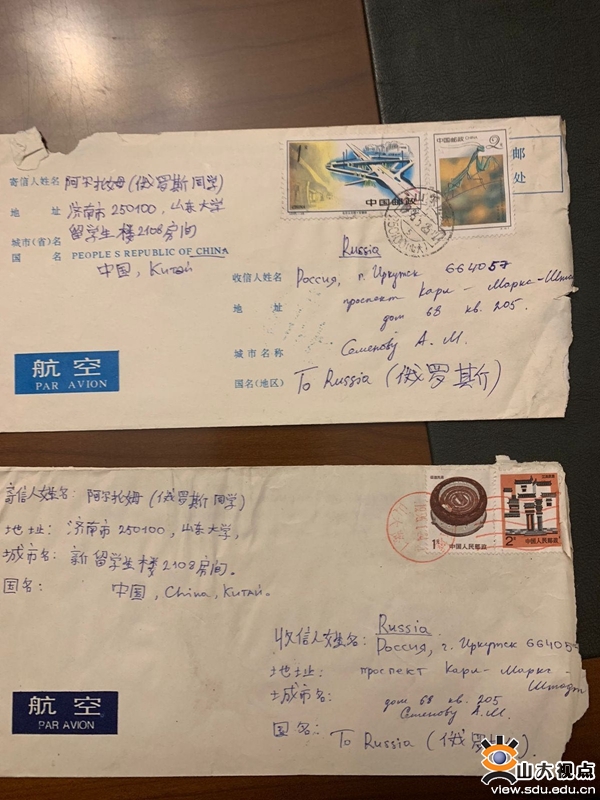 寄信人姓名 阿尔托姆(俄罗斯同学)
地 址 济南市250100,山东大学
城市(省)名 留学生楼2108房间
国 名 PEOPLE'S REPUBLIC OF CHINA
中国, Китай
航空
PAR AVION
1元
中国邮政
中国邮政 CHINA
2元
邮
处
Russia
收信人姓名 Россия, г. Иркутск 664057
地 址 проспект Карл-Маркс-Штадт
дом 68 кв. 205.
城市名称 Семенову А. М.
国名(地区) To Russia (俄罗斯)
寄信人姓名: 阿尔托姆(俄罗斯同学)
地址: 济南市250100,山东大学,
城市名: 新留学生楼2108房间。
国名: 中国, China, Китай.
航空
PAR AVION
1元 中国人民邮政
2元 中国人民邮政
Russia
收信人姓名: Россия, г. Иркутск 664057
地址: проспект Карл-Маркс-
Штадт
城市名: дом 68 кв. 205
Семенову А.М.
国名: To Russia (俄罗斯).
山大视点
view.sdu.edu.cn